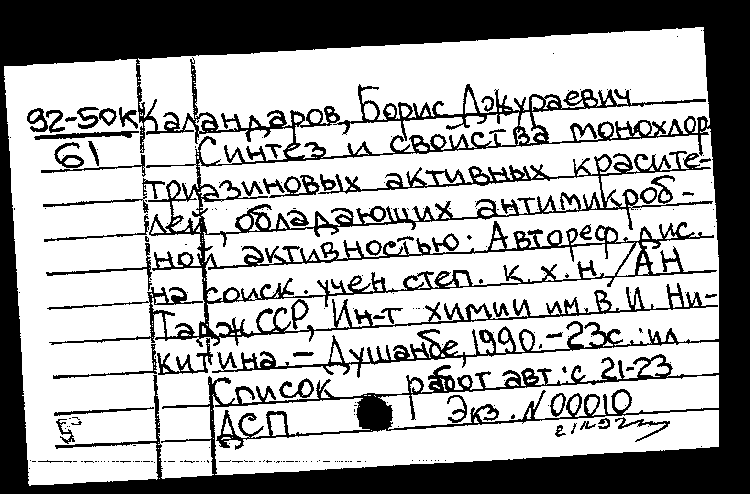 92-50К Каландаров, Борис Джураевич
61 Синтез и свойства монохлор-
триазиновых активных красите-
лей, обладающих антимикроб-
ной активностью: Автореф. дис.
на соиск. учен. степ. к. х. н. / АН
Тадж ССР, Ин-т химии им. В. И. Ни-
китина. – Душанбе, 1990. – 23с. : ил
Список работ авт.: с. 21-23
5 ДСП Экз. N 00010